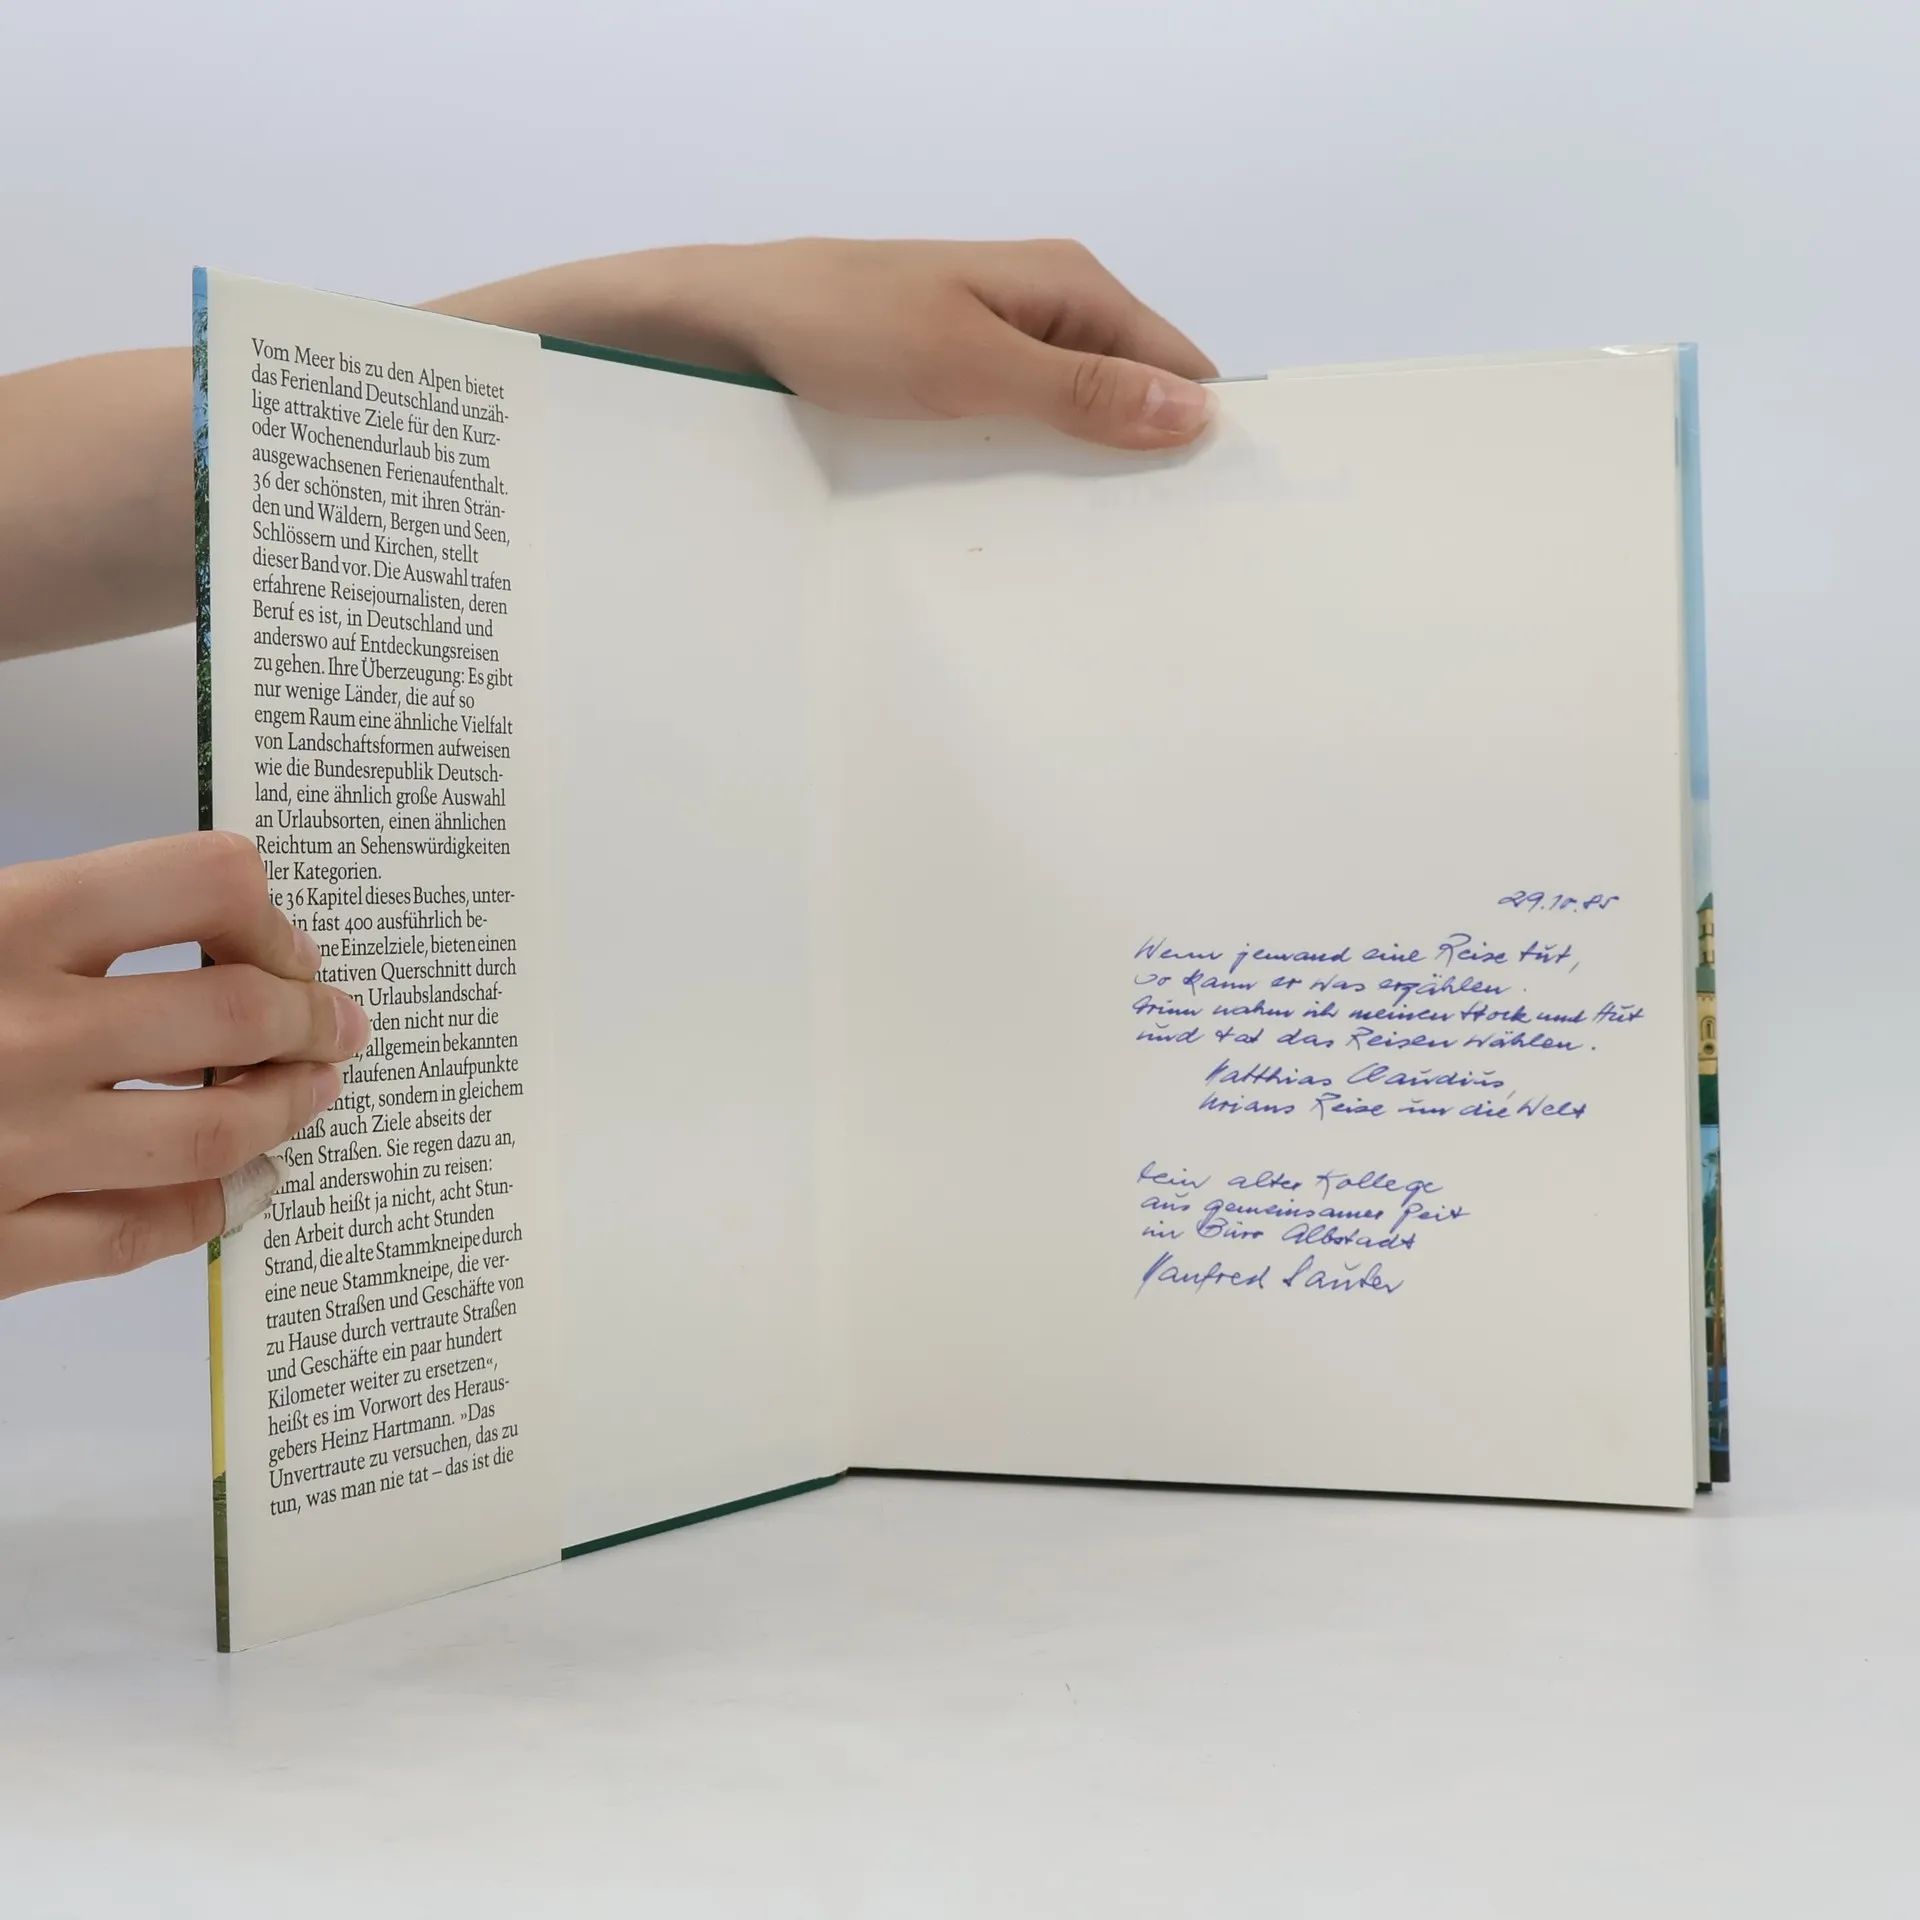 Vom Meer bis zu den Alpen bietet
das Ferienland Deutschland unzäh-
lige attraktive Ziele für den Kurz-
oder Wochenendurlaub bis zum
ausgewachsenen Ferienaufenthalt.
36 der schönsten, mit ihren Strän-
den und Wäldern, Bergen und Seen,
Schlössern und Kirchen, stellt
dieser Band vor. Die Auswahl trafen
erfahrene Reisejournalisten, deren
Beruf es ist, in Deutschland und
anderswo auf Entdeckungsreisen
zu gehen. Ihre Überzeugung: Es gibt
nur wenige Länder, die auf so
engem Raum eine ähnliche Vielfalt
von Landschaftsformen aufweisen
wie die Bundesrepublik Deutsch-
land, eine ähnlich große Auswahl
an Urlaubsorten, einen ähnlichen
Reichtum an Sehenswürdigkeiten
ller Kategorien.
ie 36 Kapitel dieses Buches, unter-
in fast 400 ausführlich be-
ne Einzelziele, bieten einen
ntativen Querschnitt durch
en Urlaubslandschaf-
rden nicht nur die
, allgemein bekannten
rlaufenen Anlaufpunkte
chtigt, sondern in gleichem
maß auch Ziele abseits der
oßen Straßen. Sie regen dazu an,
nmal anderswohin zu reisen:
»Urlaub heißt ja nicht, acht Stun-
den Arbeit durch acht Stunden
Strand, die alte Stammkneipe durch
eine neue Stammkneipe, die ver-
trauten Straßen und Geschäfte von
zu Hause durch vertraute Straßen
und Geschäfte ein paar hundert
Kilometer weiter zu ersetzen«,
heißt es im Vorwort des Heraus-
gebers Heinz Hartmann. »Das
Unvertraute zu versuchen, das zu
tun, was man nie tat – das ist die
29.10.85
Wenn jemand eine Reise tut,
so kann er was erzählen.
Drum nahm ich meinen Stock und Hut
und tat das Reisen wählen.
Matthias Claudius,
Urians Reise um die Welt
Dein alter Kollege
aus gemeinsamer Zeit
im Büro Albstadt
Manfred Sauter